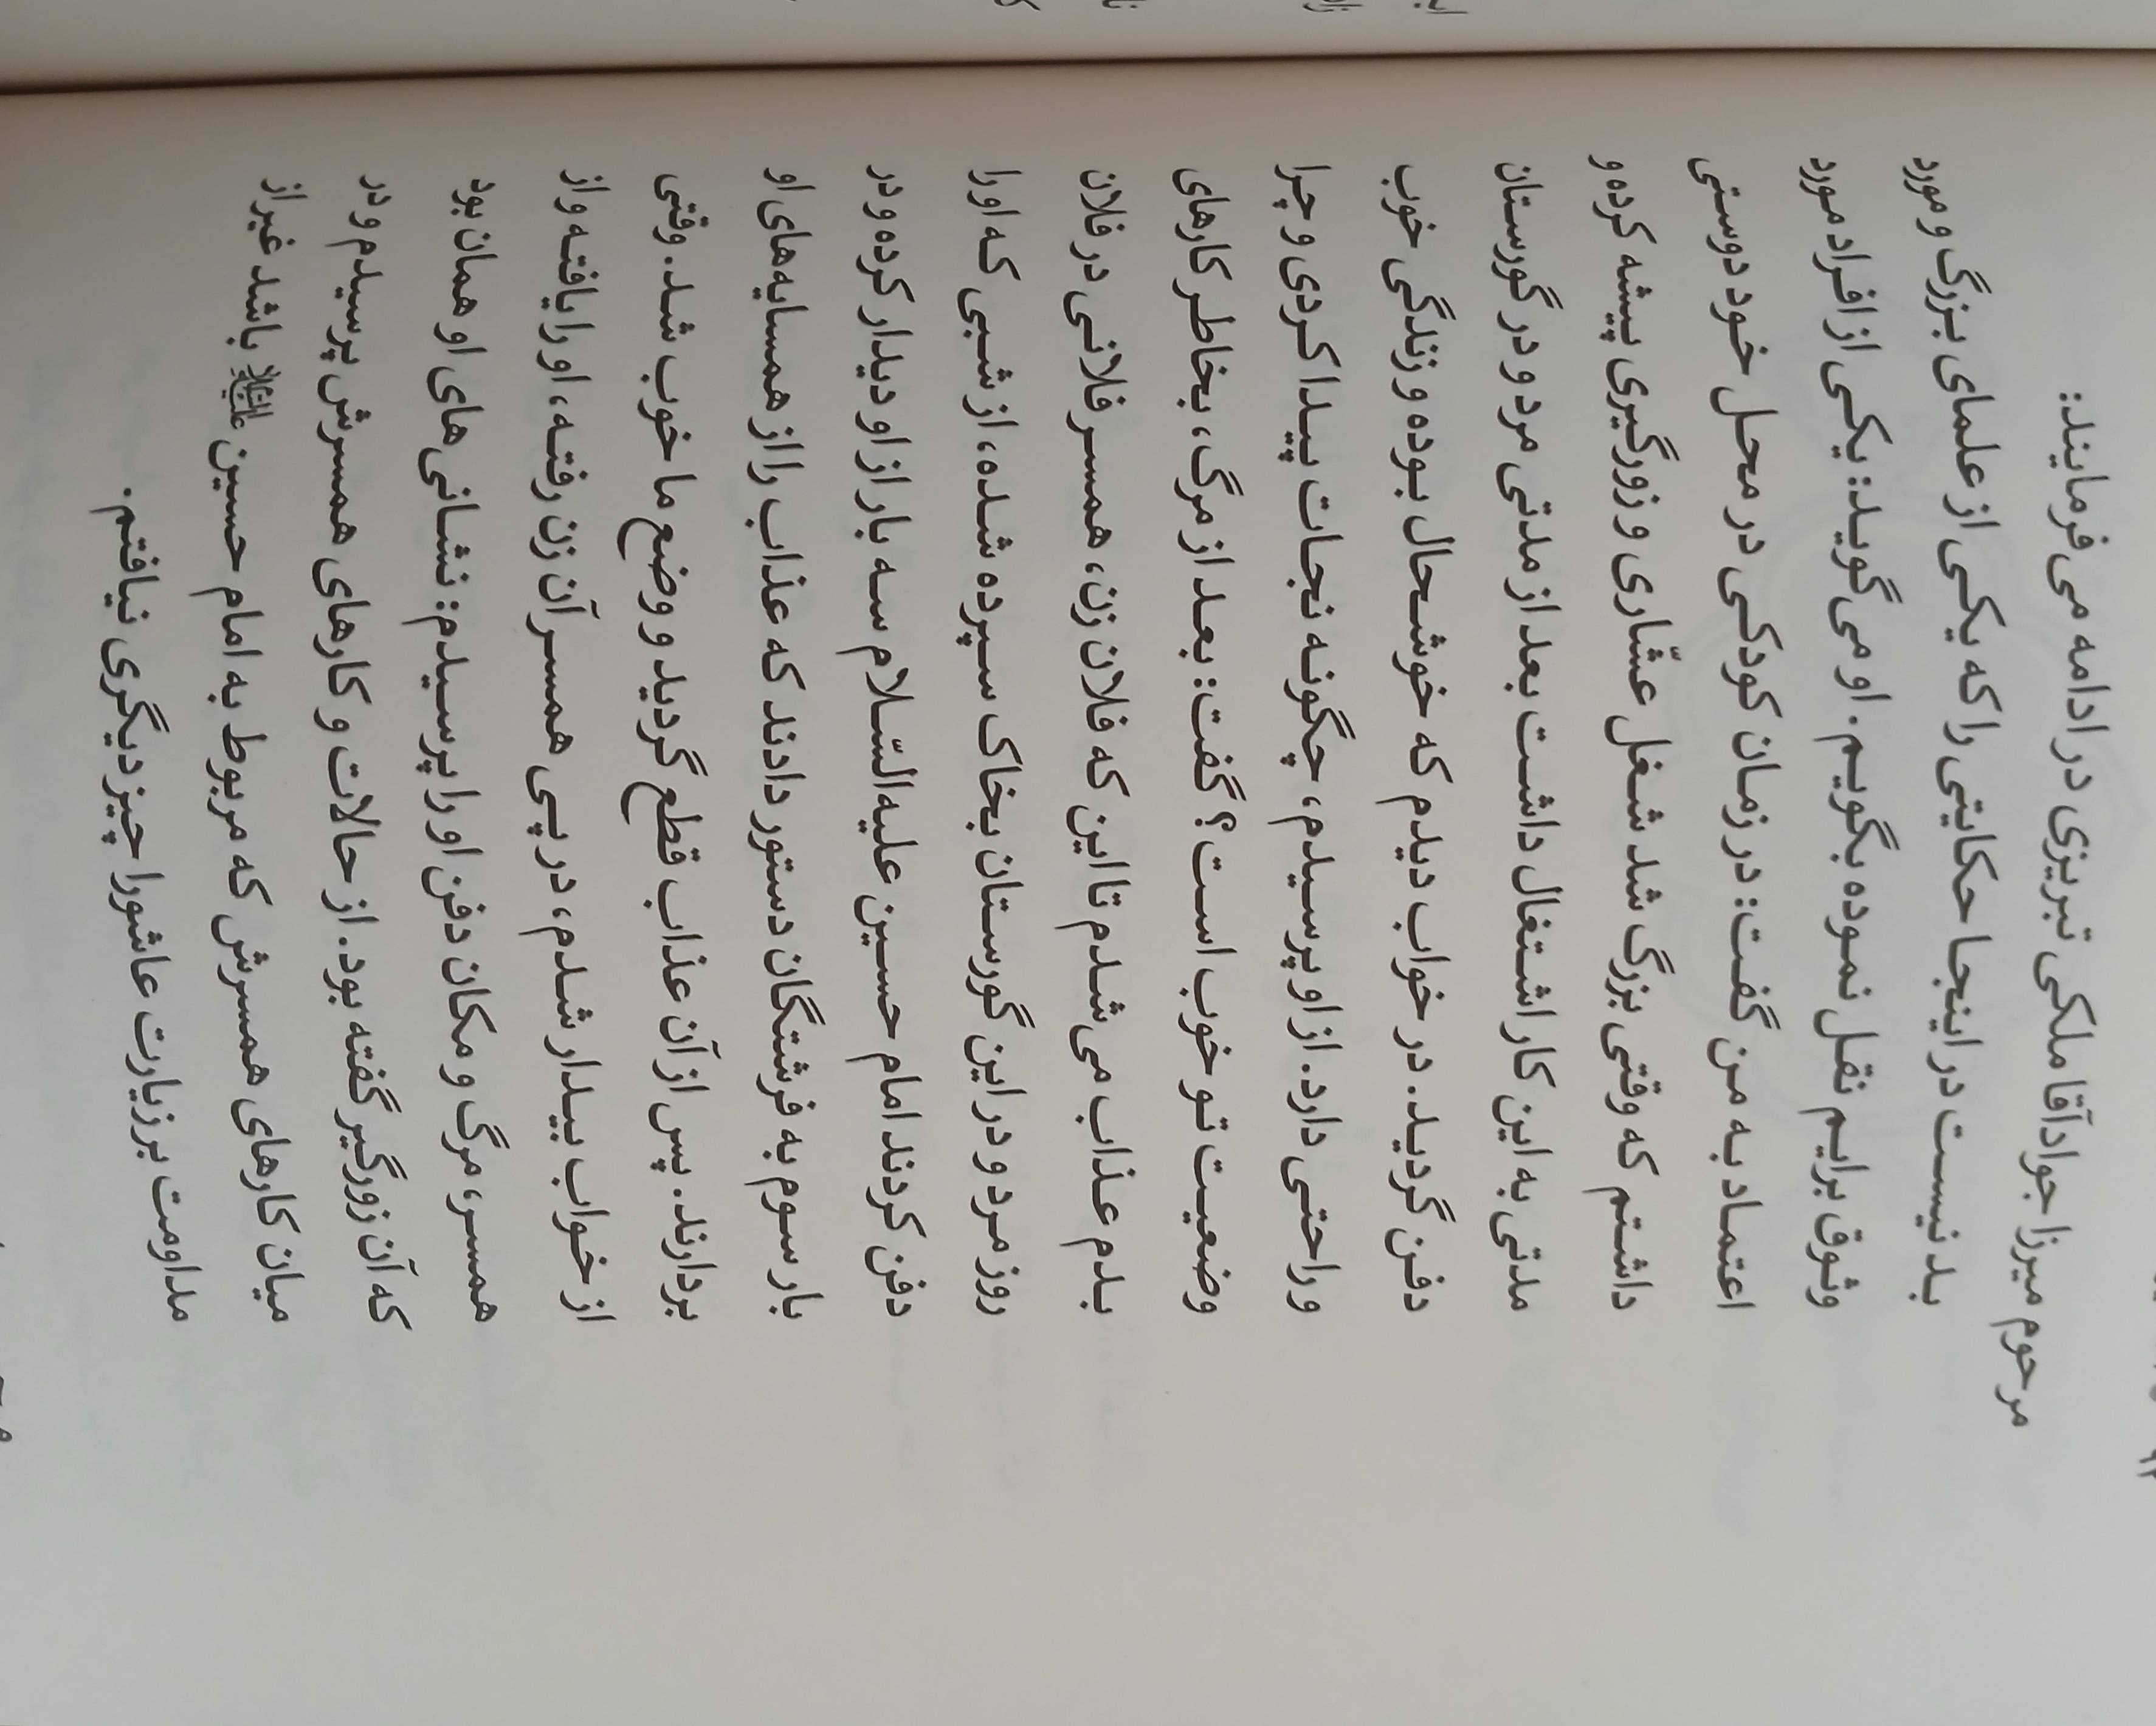 مرحوم میرزا جواد آقا ملکی تبریزی در ادامه می فرمایند:
بد نیست در اینجا حکایتی را که یکی از علمای بزرگ و مورد
وثوق برایم نقل نموده بگویم. او می گوید: یکی از افراد مورد
اعتماد به من گفت: در زمان کودکی در محل خود دوستی
داشتم که وقتی بزرگ شد شغل عشّاری و زورگیری پیشه کرده و
مدتی به این کار اشتغال داشت بعد از مدتی مرد و در گورستان
دفن گردید. در خواب دیدم که خوشحال بوده و زندگی خوب
و راحتی دارد. از او پرسیدم، چگونه نجات پیدا کردی و چرا
وضعیت تو خوب است؟ گفت: بعد از مرگ، بخاطر کارهای
بدم عذاب می شدم تا این که فلان زن، همسر فلانی در فلان
روز مرد و در این گورستان بخاک سپرده شده، از شبی که او را
دفن کردند امام حسین علیه السّلام سه بار از او دیدار کرده و در
بار سوم به فرشتگان دستور دادند که عذاب را از همسایه های او
بردارند. پس از آن عذاب قطع گردید و وضع ما خوب شد. وقتی
از خواب بیدار شدم، در پی همسر آن زن رفته، او را یافته و از
همسر، مرگ و مکان دفن او را پرسیدم: نشانی های او همان بود
که آن زورگیر گفته بود. از حالات و کارهای همسرش پرسیدم و در
میان کارهای همسرش که مربوط به امام حسین علیه‌السلام باشد غیر از
مداومت بر زیارت عاشورا چیز دیگری نیافتم.